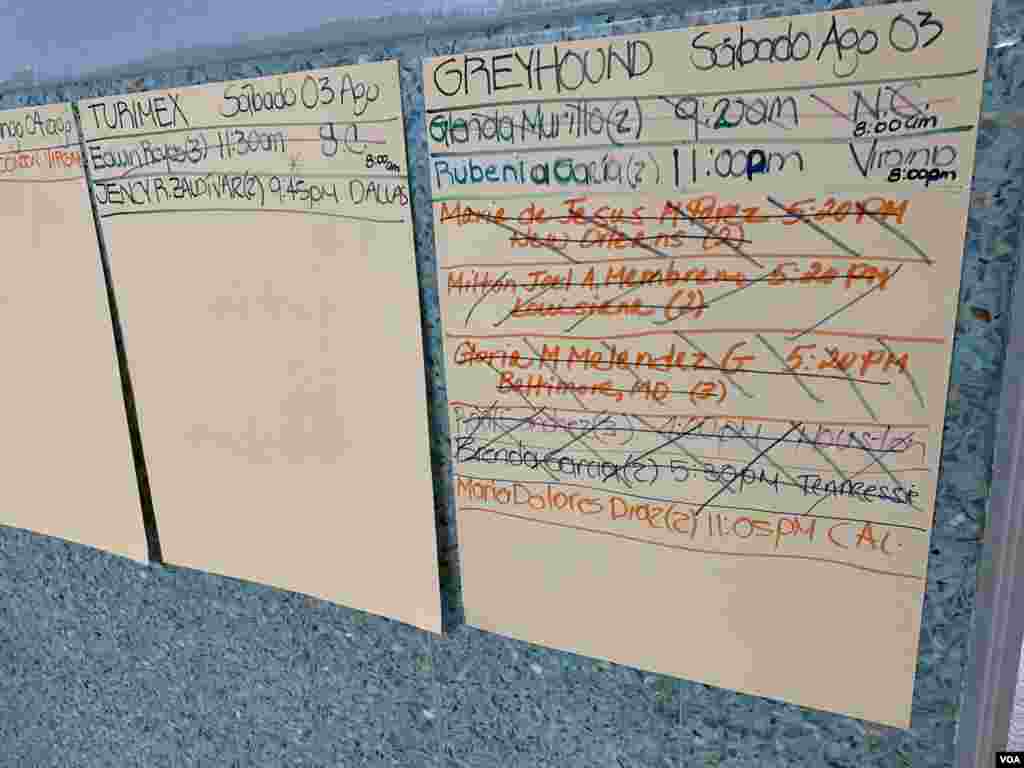 04 ago
TURIMEX Sábado 03 Ago
Edwin Reyes (3) 11:30am S.C.
8:00am
JENCY R ZALDIVAR (2) 9:45pm DALLAS
GREYHOUND Sábado Ago 03
Glenda Murillo (2) 9:20am N.C.
8:00am
Rubenia Garcia (2) 11:00pm
8:00pm
Maria de Jesus 5:20 PM
New Orleans (2)
Milton Joel A. Membreno 5:20 PM
Louisiana (2)
Gloria M Melendez G 5:20 PM
Baltimore, MD (2)
Brenda Garcia (2) 5:30pm
Maria Dolores Diaz (2) 11:05pm CAL.
VOA